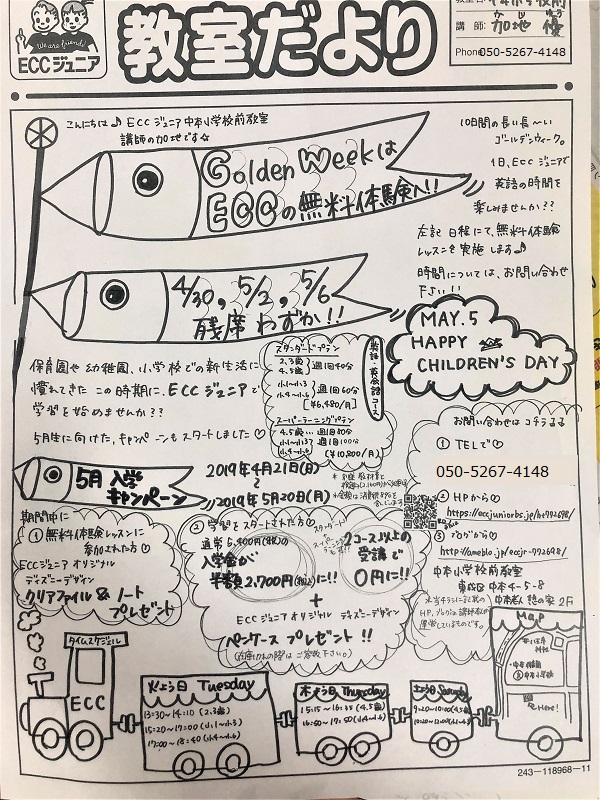 We are friends!
ECCジュニア
教室だより
講師: 加地 優
Phone 050-5267-4148
こんにちは♪ ECCジュニア中本小学校前教室
講師の加地です☆
Golden Weekは
ECCの無料体験へ!!
10日間の長い長〜い
ゴールデンウィーク。
1日、ECCジュニアで
英語の時間を
楽しみませんか??
左記日程にて、無料体験
レッスンを実施します♪
時間については、お問い合わせ
下さい!!
4/30, 5/2, 5/6
残席わずか!!
MAY.5
HAPPY
CHILDREN'S DAY
保育園や幼稚園、小学校での新生活に
慣れてきたこの時期に、ECCジュニアで
学習を始めませんか??
5月生に向けた、キャンペーンもスタートしました♡
英語・英会話コース
スタンダードプラン
2.3歳
4.5歳 週1回40分
小1〜小3
小4〜小6 週1回60分
[¥6,480/月]
スーパーラーニングプラン
4.5歳… 週1回80分
小1〜小3
小4〜小6 週1回100分
(¥10,800/月)
5月入学
キャンペーン
2019年4月21日(日)
〜
2019年5月20日(月)
お問い合わせはコチラまで
① TELで♡
050-5267-4148
② HPから♡
https://eccjuniorbs.jp/ht792698/
③ ブログから♡
http://ameblo.jp/eccjr-792698/
中本小学校前教室
東成区中本4-5-8
中本老人憩の家2F
期間中に
① 無料体験レッスンに
参加された方♡
ECCジュニアオリジナル
ディズニーデザイン
クリアファイル & ノート
プレゼント
② 学習をスタートされた方♡
通常5,400円(税込)
入学金が
半額2,700円(税込)に!!
2コース以上の
受講で
0円に!!
+
ECCジュニアオリジナル ディズニーデザイン
ペンケースプレゼント!!
(在庫切れの際はご容赦下さい。)
※当チラシに記載の
HP、ブログは講師教室が
運営しているものです。
タイムスケジュール
ECC
火よう日 Tuesday
13:30〜14:10 (2.3歳)
15:20〜17:00 (小1〜小3)
17:00〜18:40 (小4〜小6)
木よう日 Thursday
15:15〜16:35 (4.5歳)
16:50〜17:50 (小4〜小6)
土よう日 Saturday
9:20〜10:00 (4.5歳)
Map
Here!
243-118968-11